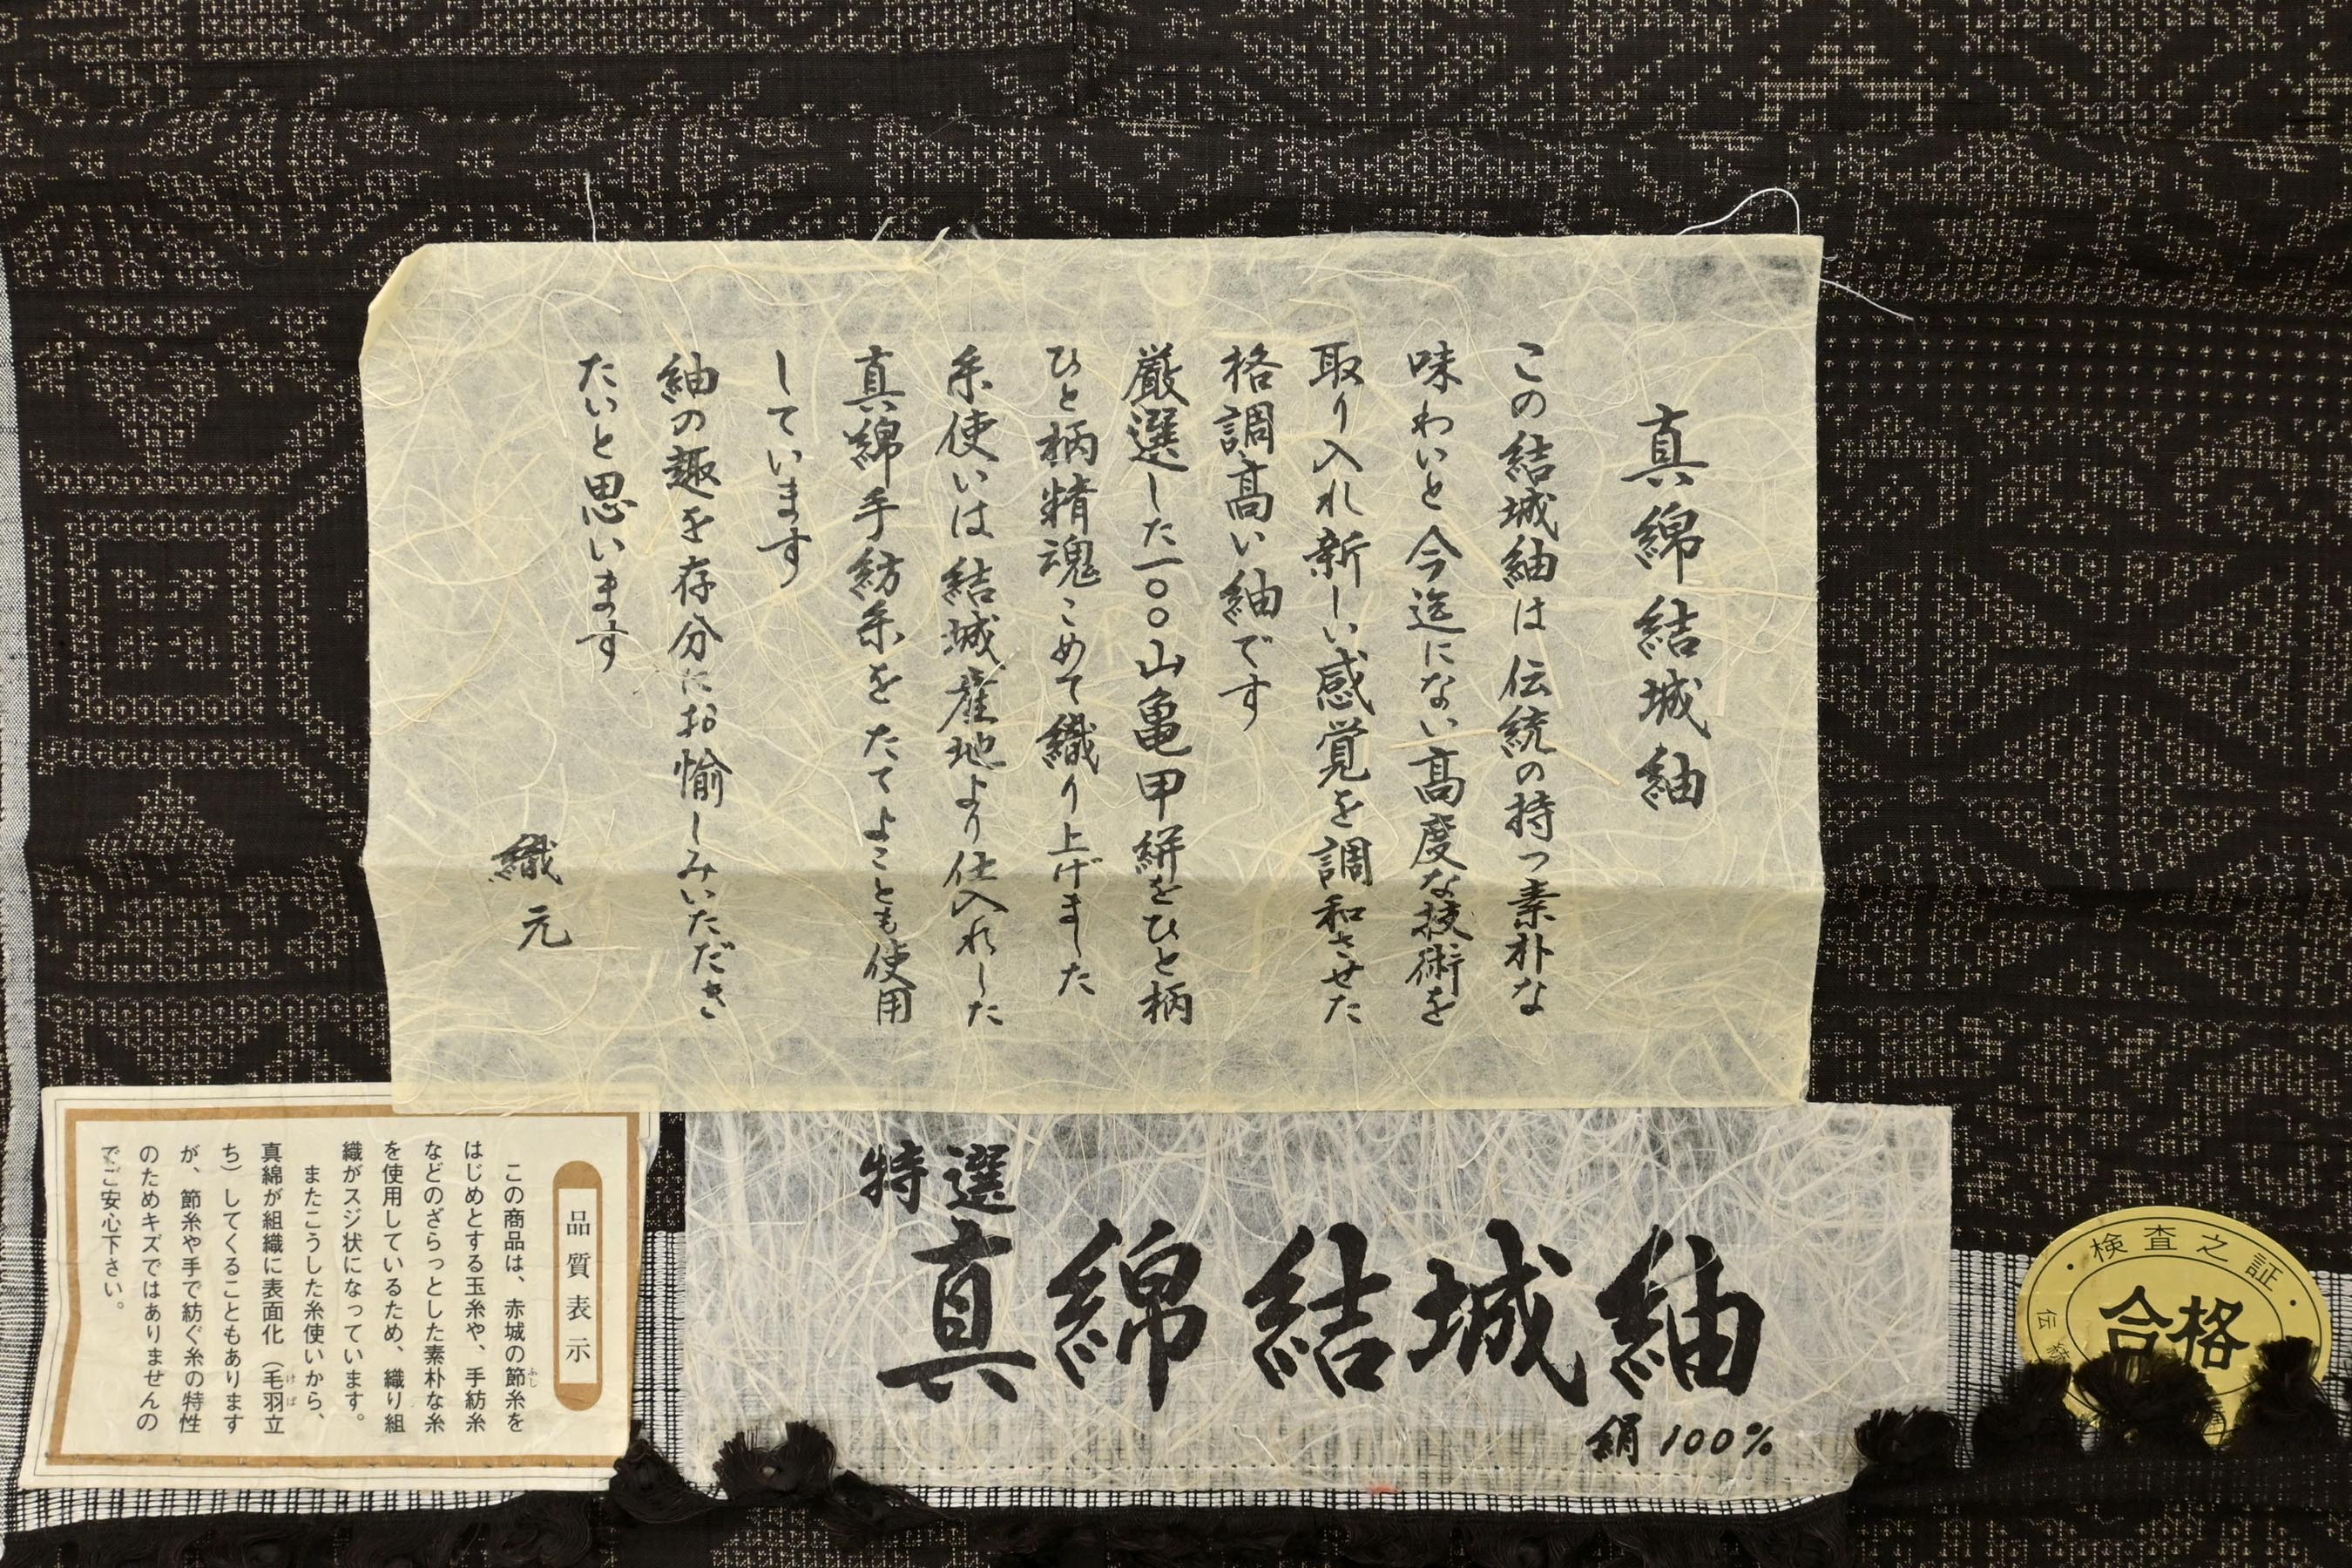 真綿結城紬
この結城紬は伝統の持つ素朴な
味わいと今迄にない高度な技術を
取り入れ新しい感覚を調和させた
格調高い紬です
厳選した一〇〇山亀甲絣をひと柄
ひと柄精魂こめて織り上げました
糸使いは結城産地より仕入れした
真綿手紡糸をたてよことも使用
しています
紬の趣を存分にお愉しみいただき
たいと思います
織元
品質表示
この商品は、赤城の節糸を
ふし
はじめとする玉糸や、手紡糸
などのざらっとした素朴な糸
を使用しているため、織り組
織がスジ状になっています。
またこうした糸使いから、
真綿が組織に表面化（毛羽立
けば
ち）してくることもあります
が、節糸や手で紡ぐ糸の特性
のためキズではありませんの
でご安心下さい。
特選
真綿結城紬
絹100%
・検査之証・
合格
伝